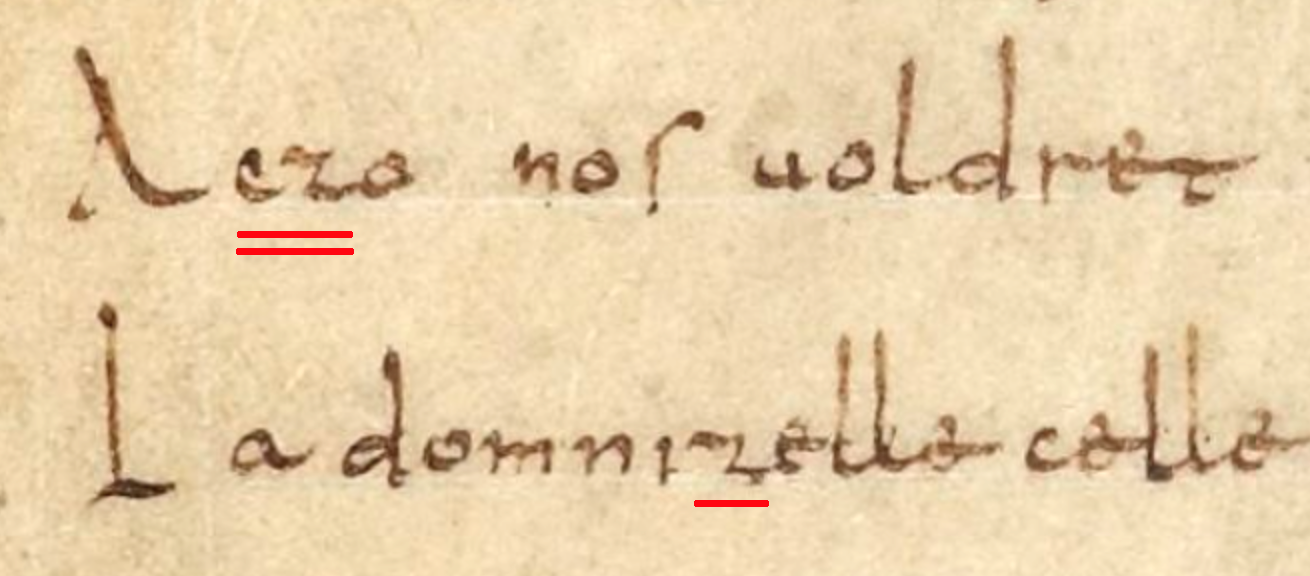 A czo nos uoldret
La domnizelle celle